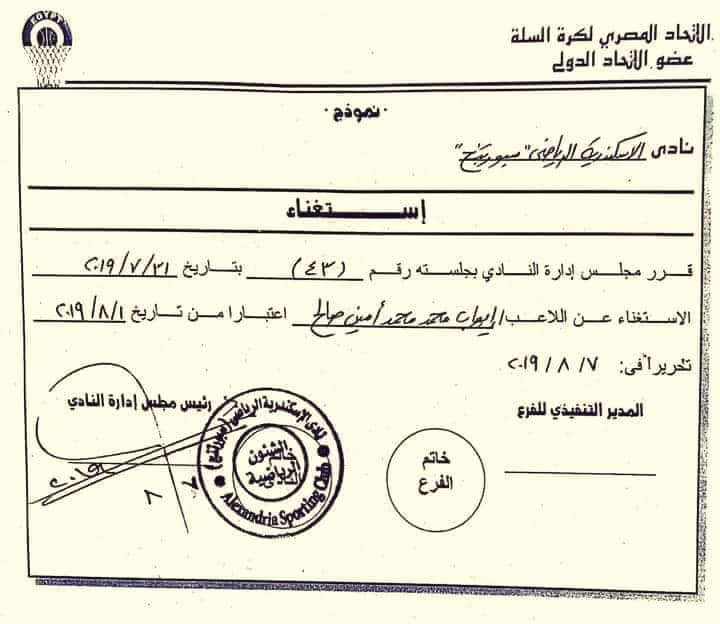 EGYPT
الاتحاد المصري لكرة السلة
عضو الاتحاد الدولى
نموذج
نادى الاسكندرية الرياضى "سبورتنج"
إستغناء
قرر مجلس إدارة النادي بجلسته رقم (٤٣) بتاريخ ٢٠١٩/٧/٣١
الاستغناء عن اللاعب/ إيهاب محمد محمد أمين صالح اعتبارا من تاريخ ٢٠١٩/٨/١
تحريرا فى: ٢٠١٩/٨/٧
رئيس مجلس إدارة النادي
المدير التنفيذي للفرع
نادى الإسكندرية الرياضى (سبورتنج)
الشئون
الرياضية
Alexandria Sporting Club
خاتم
الفرع
٢٠١٩ ٨